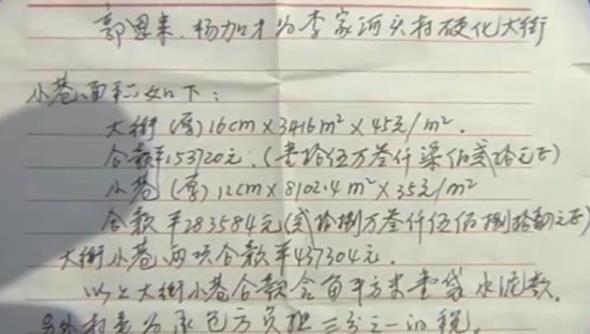 郭恩来、杨加才为李家河头村硬化大街
小巷面积如下：
大街（厚）16cm×3416m²×45元/m².
合款￥153720元.（壹拾伍万叁仟柒佰贰拾元正）
小巷（厚）12cm×8102.4m²×35元/m²
合款￥283584元（贰拾捌万叁仟伍佰捌拾肆元正）
大街小巷两项合款￥437304元.
以上大街小巷合款含每平方米壹袋水泥款.
另外村委为承包方负担三分之一的税.